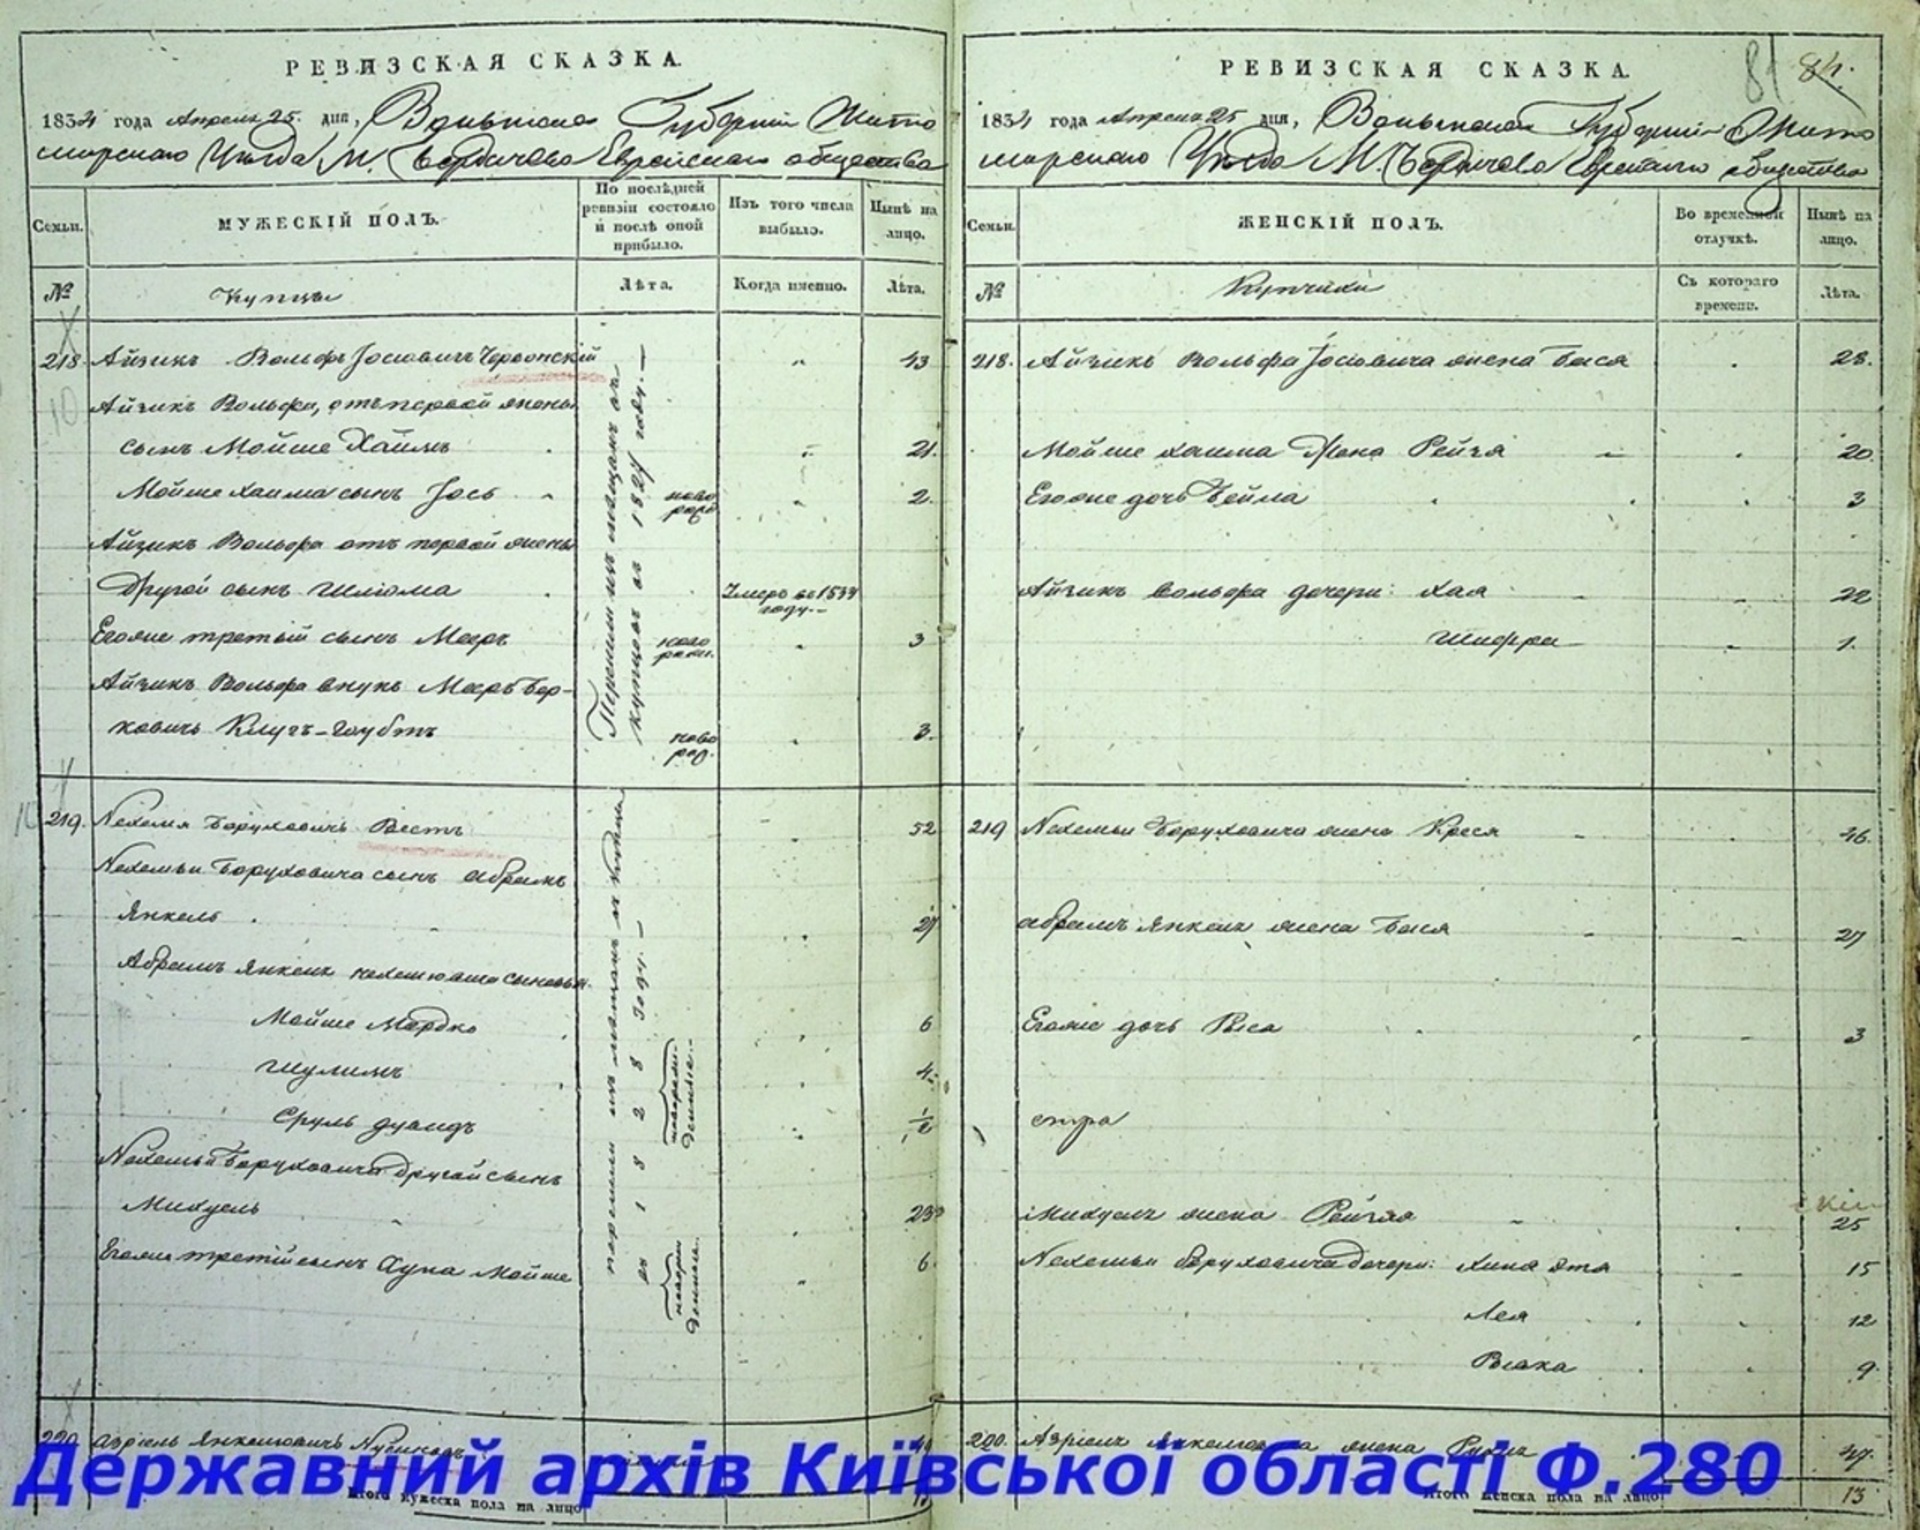 РЕВИЗСКАЯ СКАЗКА.
1834 года Апреля 25. дня, Волынской Губерніи Жито
мирскаго Уѣзда М. Бердичева Еврейскаго общества
Семьи.
МУЖЕСКІЙ ПОЛЪ.
По послѣдней
ревизіи состояло
и послѣ оной
прибыло.
Изъ того числа
выбыло.
Нынѣ на
лицо.
№
Купцы
Лѣта.
Когда именно.
Лѣта.
218. Айзикъ Вольфъ Іосіовичъ Червонскій " 43
10
Айзикъ Вольфа, отъ первой жены
сынъ Мойше Хаимъ " 21.
Мойше Хаима сынъ Іось ново рожд " 2.
Айзикъ Вольфа отъ первой жены
Другой сынъ Шлiома Умеръ въ 1834 году.
Егоже третій сынъ Мееръ ново рожд. " 3
Айзикъ Вольфа внукъ Мееръ Бер-
ковичъ Клугъ-Гаубтъ ново рожд. " 3.
Перешли изъ мещанъ въ
купцовъ въ 1827 году. —
219. Нехемя Боруховичъ Вестъ 52
Нехемьи Боруховича сынъ Абрамъ
Янкель 27
Абрамъ Янкеля нехемювича сыновья
Мойше Мордко 6
Шулимъ 4
Сруль дувидъ 1/2
Нехемьи Боруховича другой сынъ
Михуель 23
Егоже третій сынъ Хуна Мойше 6.
перешли изъ мещанъ въ купцы
въ 1828 году. —
новорож-
денные.
новорож
денные.
220. Азріель Янкелювичъ
Итого мужеска пола на лицо
РЕВИЗСКАЯ СКАЗКА.
81 84.
1834 года Апреля 25 дня, Волынской Губерніи Жито
мирскаго Уѣзда М. Бердичева Еврейскаго общества
Семьи.
ЖЕНСКІЙ ПОЛЪ.
Во временной
отлучкѣ.
Нынѣ на
лицо.
№
Купчихи
Съ котораго
времени.
Лѣта.
218. Айзикъ Вольфа Іосіовича жена Бася 28.
Мойше хаима Жена Рейзя 20.
Егоже дочь Бейла 3
Айзикъ вольфа дочери: Хая 22
Шифра 1.
219 Нехемьи Боруховича жена Креся 46.
Абрамъ Янкеля жена Бася 27
Егоже дочь Рыся 3
стра
Михуеля жена Рейзя 25
Нехемьи Боруховича дочери: Хина Эта 15
Лея 12
9.
220. Азріеля Янкелювича жена 47.
Итого женска пола на лицо 13
Державний архів Київської області Ф.280